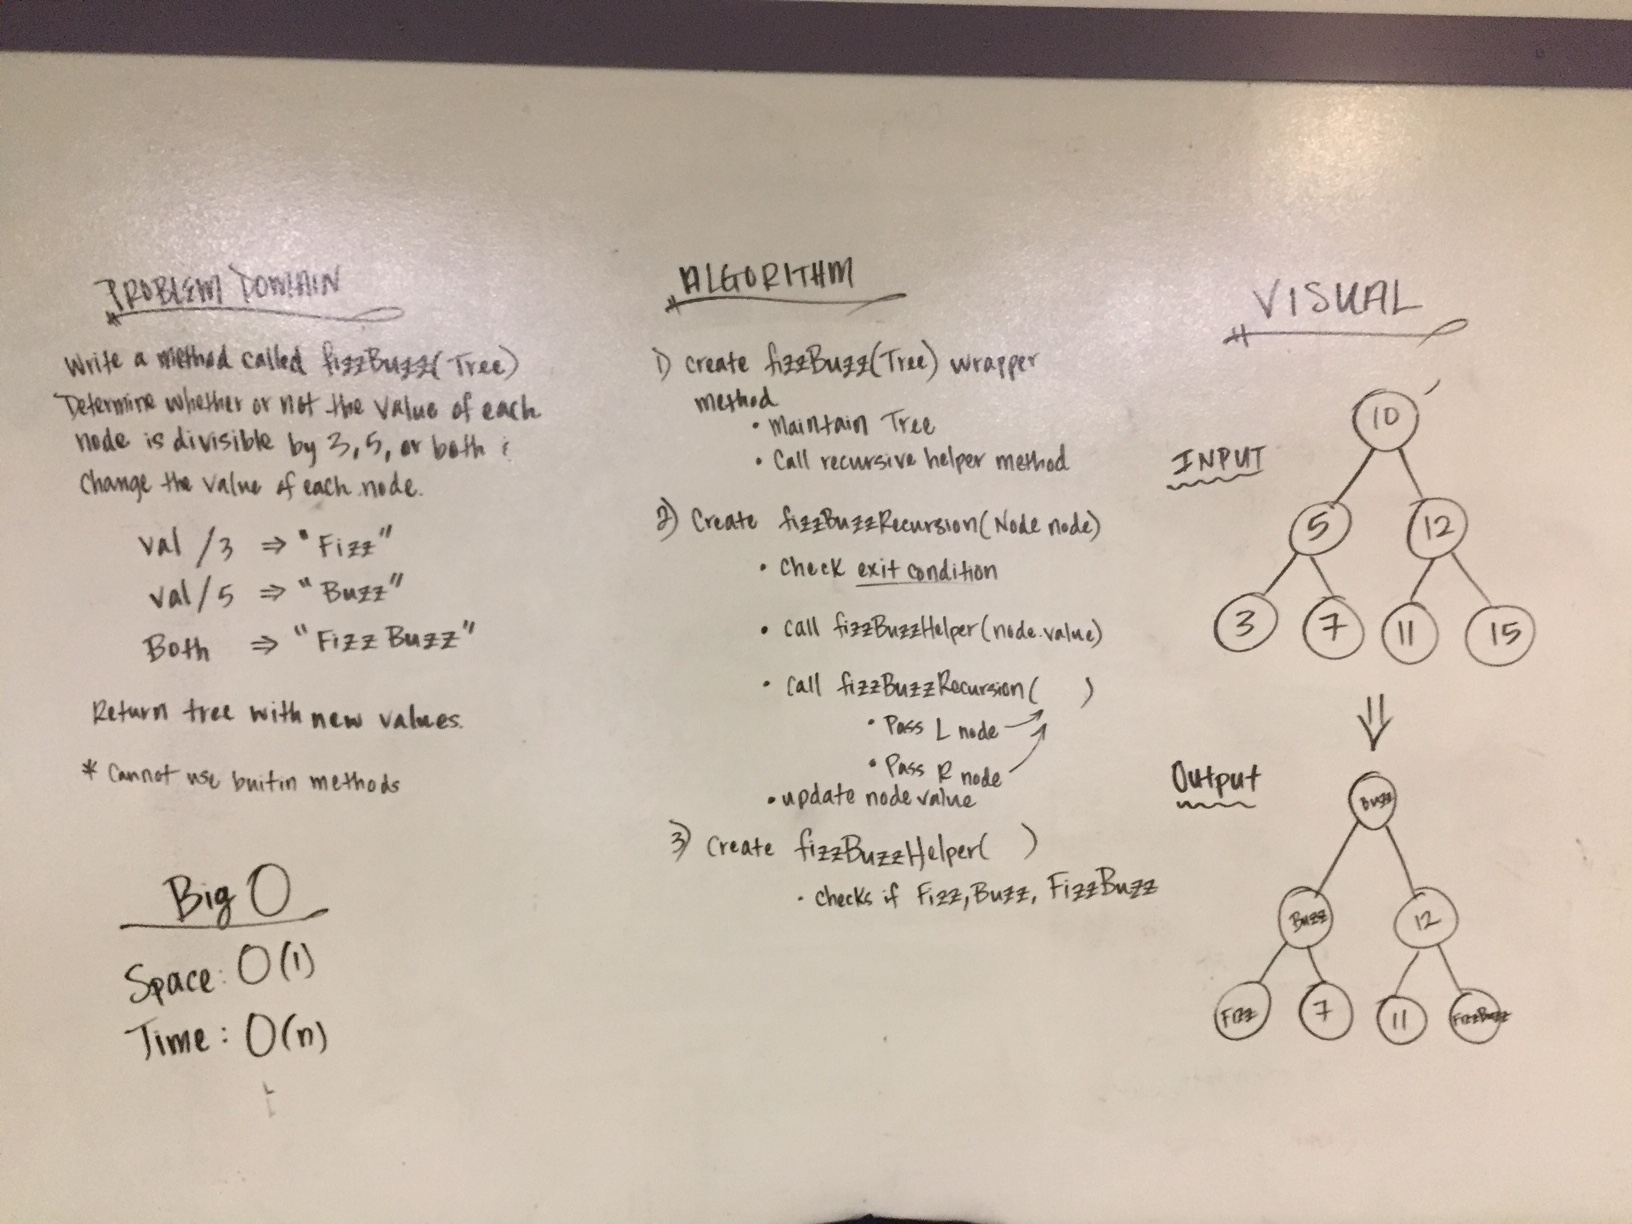 PROBLEM DOMAIN
Write a method called fizzBuzz(Tree)
Determine whether or not the value of each
node is divisible by 3, 5, or both &
change the value of each node.
val /3 ⇒ "Fizz"
val /5 ⇒ "Buzz"
Both ⇒ "Fizz Buzz"
Return tree with new values.
* Cannot use builtin methods
Big O
Space: O(1)
Time: O(n)
ALGORITHM
1) Create fizzBuzz(Tree) wrapper
method
• Maintain Tree
• Call recursive helper method
2) Create fizzBuzzRecursion(Node node)
• Check exit condition
• call fizzBuzzHelper(node.value)
• call fizzBuzzRecursion( )
• Pass L node
• Pass R node
• update node value
3) Create fizzBuzzHelper( )
• checks if Fizz, Buzz, FizzBuzz
VISUAL
INPUT
10
5 12
3 7 11 15
Output
Buzz
Buzz 12
Fizz 7 11 FizzBuzz